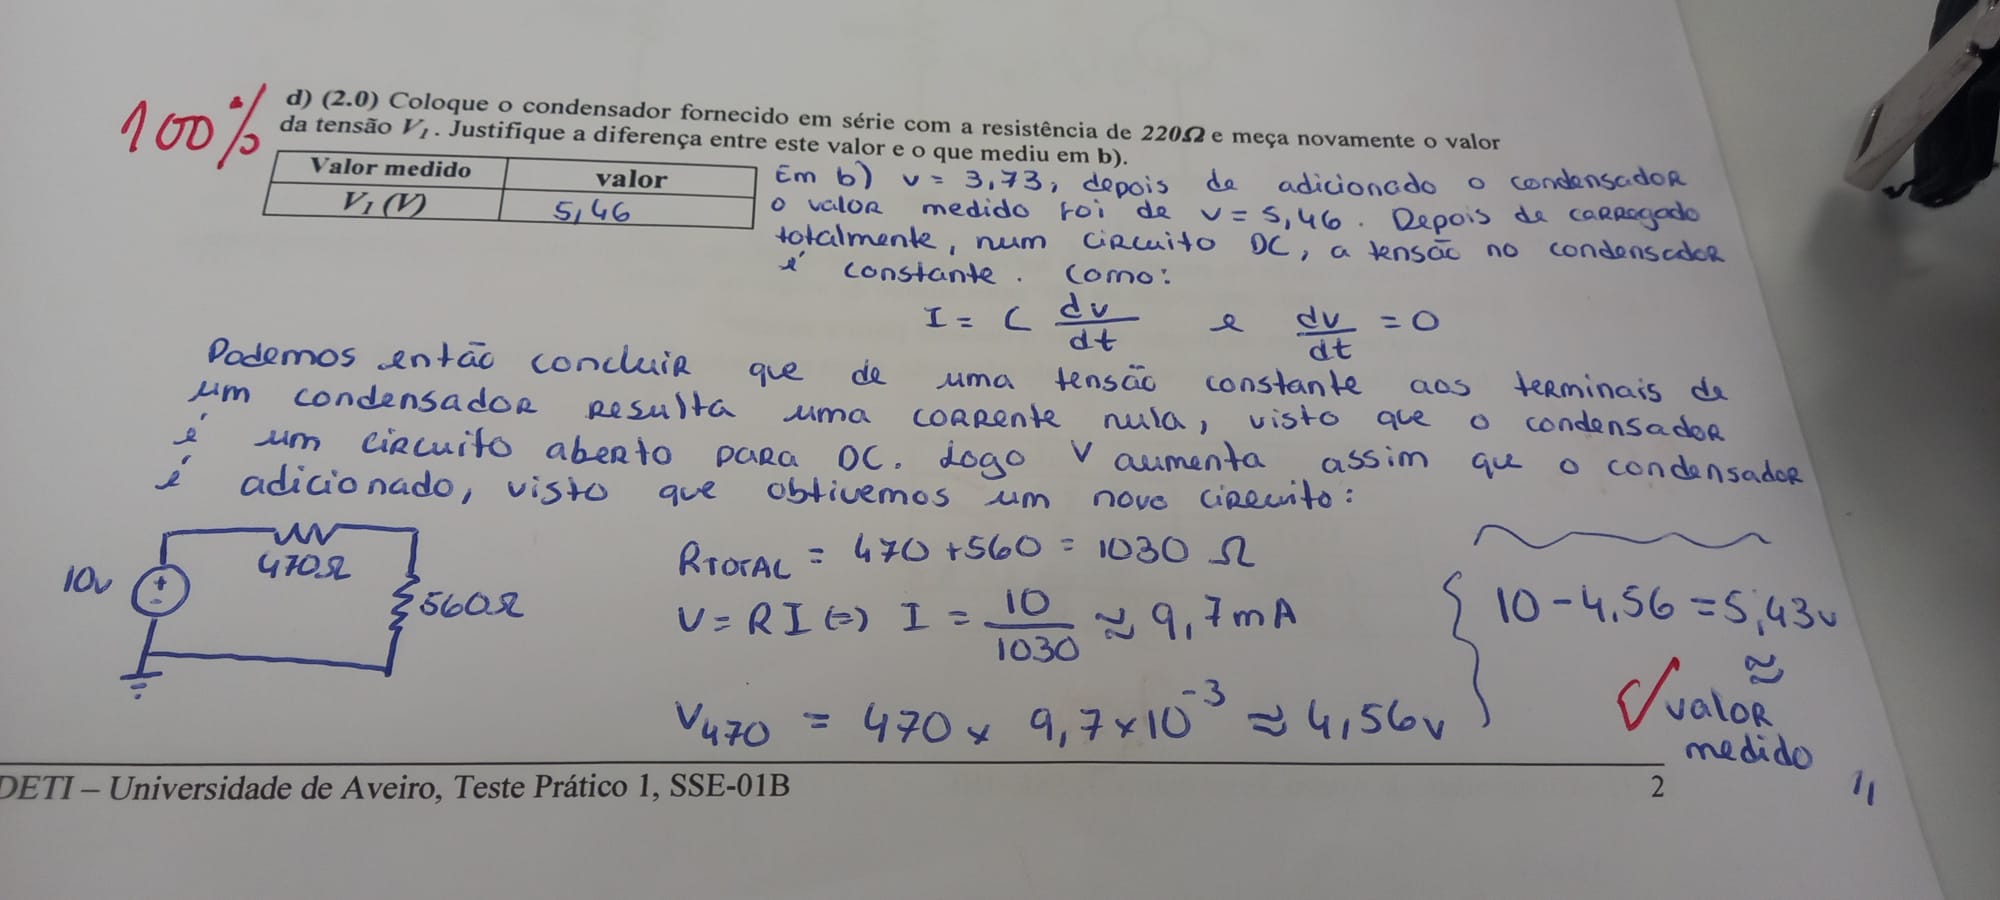 100%
d) (2.0) Coloque o condensador fornecido em série com a resistência de 220Ω e meça novamente o valor
da tensão V₁. Justifique a diferença entre este valor e o que mediu em b).
Valor medido valor
V₁ (V) 5,46
Em b) v = 3,73, depois de adicionado o condensador
o valor medido foi de v = 5,46. Depois de carregado
totalmente, num circuito DC, a tensão no condensador
é constante. Como:
I = C dv/dt e dv/dt = 0
Podemos então concluir que de uma tensão constante aos terminais de
um condensador resulta uma corrente nula, visto que o condensador
é um circuito aberto para DC. Logo V aumenta assim que o condensador
é adicionado, visto que obtivemos um novo circuito:
10v + - 470Ω 560Ω
RTOTAL = 470 + 560 = 1030 Ω
V = RI (=) I = 10/1030 ≈ 9,7mA
V470 = 470 × 9,7×10⁻³ ≈ 4,56v
10 - 4,56 = 5,43v
≈
valor
medido
DETI – Universidade de Aveiro, Teste Prático 1, SSE-01B 2